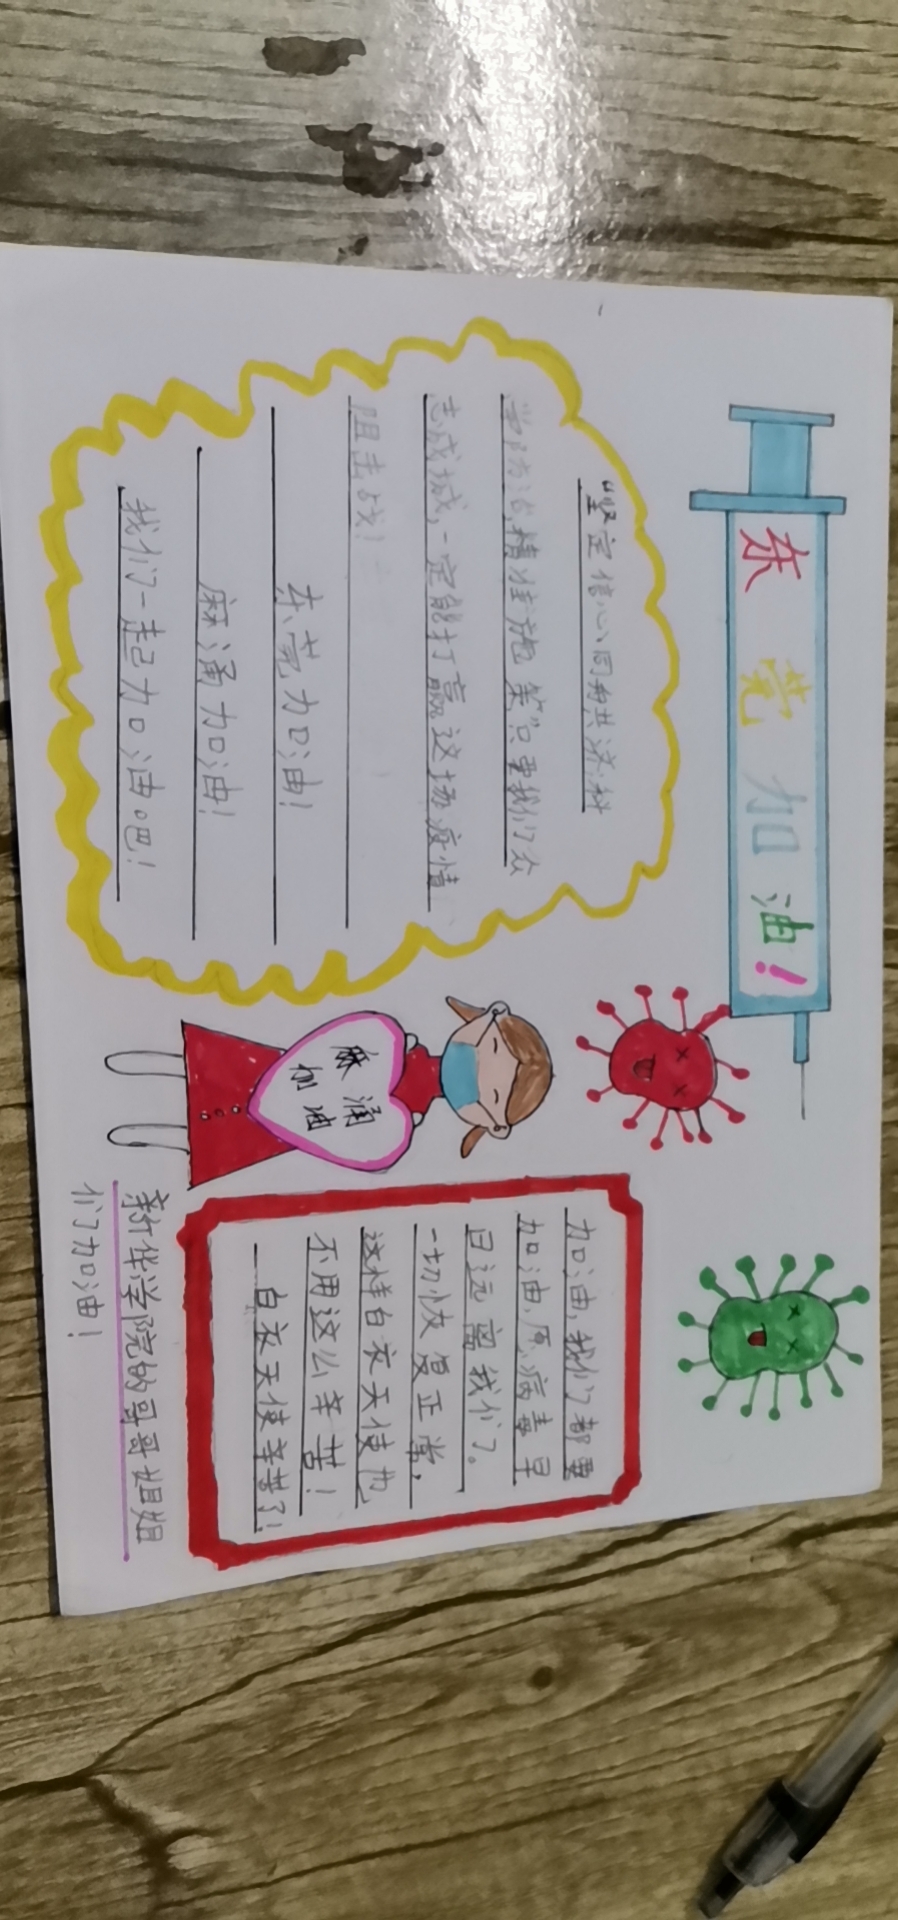 东莞加油!
"坚定信心、同舟共济、科
学防治、精准施策"只要我们众
志成城,一定能打赢这场疫情
阻击战!
东莞力口油!
麻涌加油!
我们一起力口油吧!
麻涌
加油
加油,我们都要
加油,愿病毒早
日远离我们了。
一切恢复正常,
这样白衣天使也
不用这么辛苦!
白衣天使辛苦了!
新华学院的哥哥姐姐
们加油!